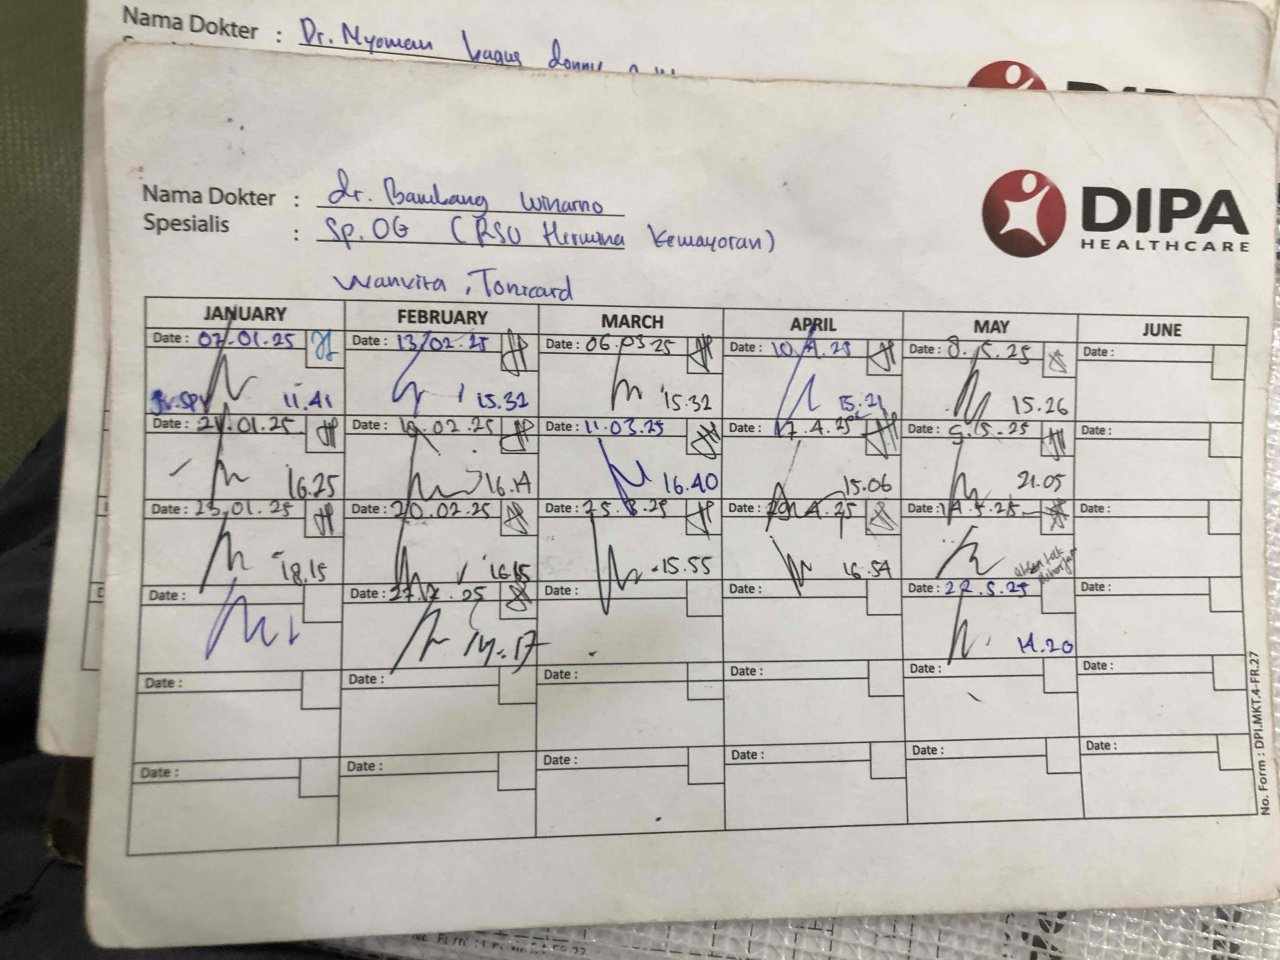 Nama Dokter : Dr. Nyoman bagus donny
DIPA
Nama Dokter : dr. Bambang Winarno
Spesialis : Sp.OG (RSU Hermina Kemayoran)
DIPA
HEALTHCARE
Wanvita, Tonicard
JANUARY FEBRUARY MARCH APRIL MAY JUNE
Date : 07.01.25 Date : 13/02.25 Date : 06.03 25 Date : 10.4.25 Date : 8.5.25 Date :
11.41 15.32 15.32 15.21 15.26
Date : 21.01.25 Date : 02.25 Date : 11.03.25 Date : 17.4.25 Date : 5.25 Date :
16.25 16.14 16.40 15.06 21.05
Date : 23.01.25 Date : 20.02.25 Date : 25.3.25 Date : 4.25 Date : 14.5.25 Date :
18.15 16.15 15.55 16.54
Date : Date : 27.2.25 Date : Date : Date : 22.5.25 Date :
14.17 14.20
Date : Date : Date : Date : Date : Date :
Date : Date : Date : Date : Date : Date :
No. Form : DPI.MKT.4-FR.27